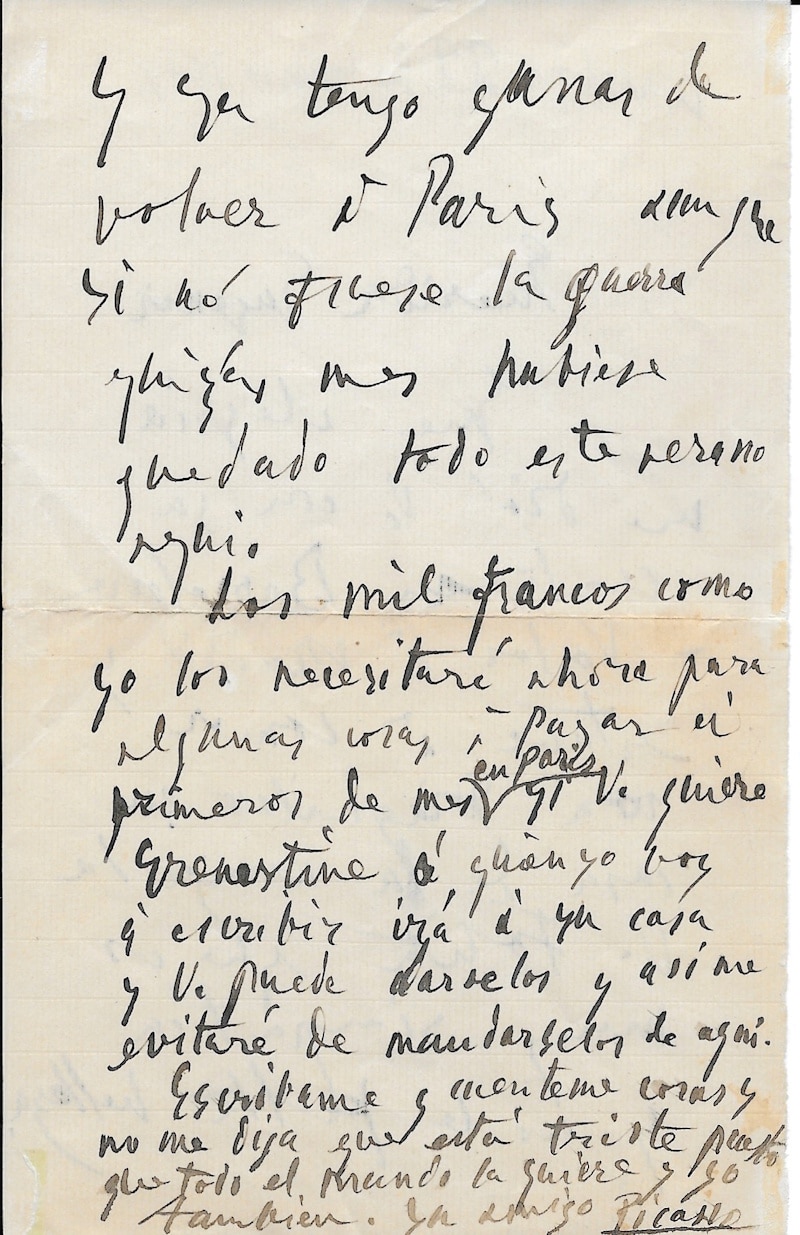 y ya tengo ganas de
volver á Paris aunque
si nó fuese la guerra
quizás me hubiese
quedado todo este verano
aqui.
Los mil francos como
yo los necesitaré ahora para
algunas cosas á pagar á
primeros de mes en Paris si V. quiere
á quien yo voy
á escribir irá á su casa
y V. puede darselos y asi me
evitaré de mandarselos de aqui.
Escribame y cuenteme cosas y
no me diga que está triste puesto
que todo el mundo la quiere y yo
tambien. Su amigo Picasso